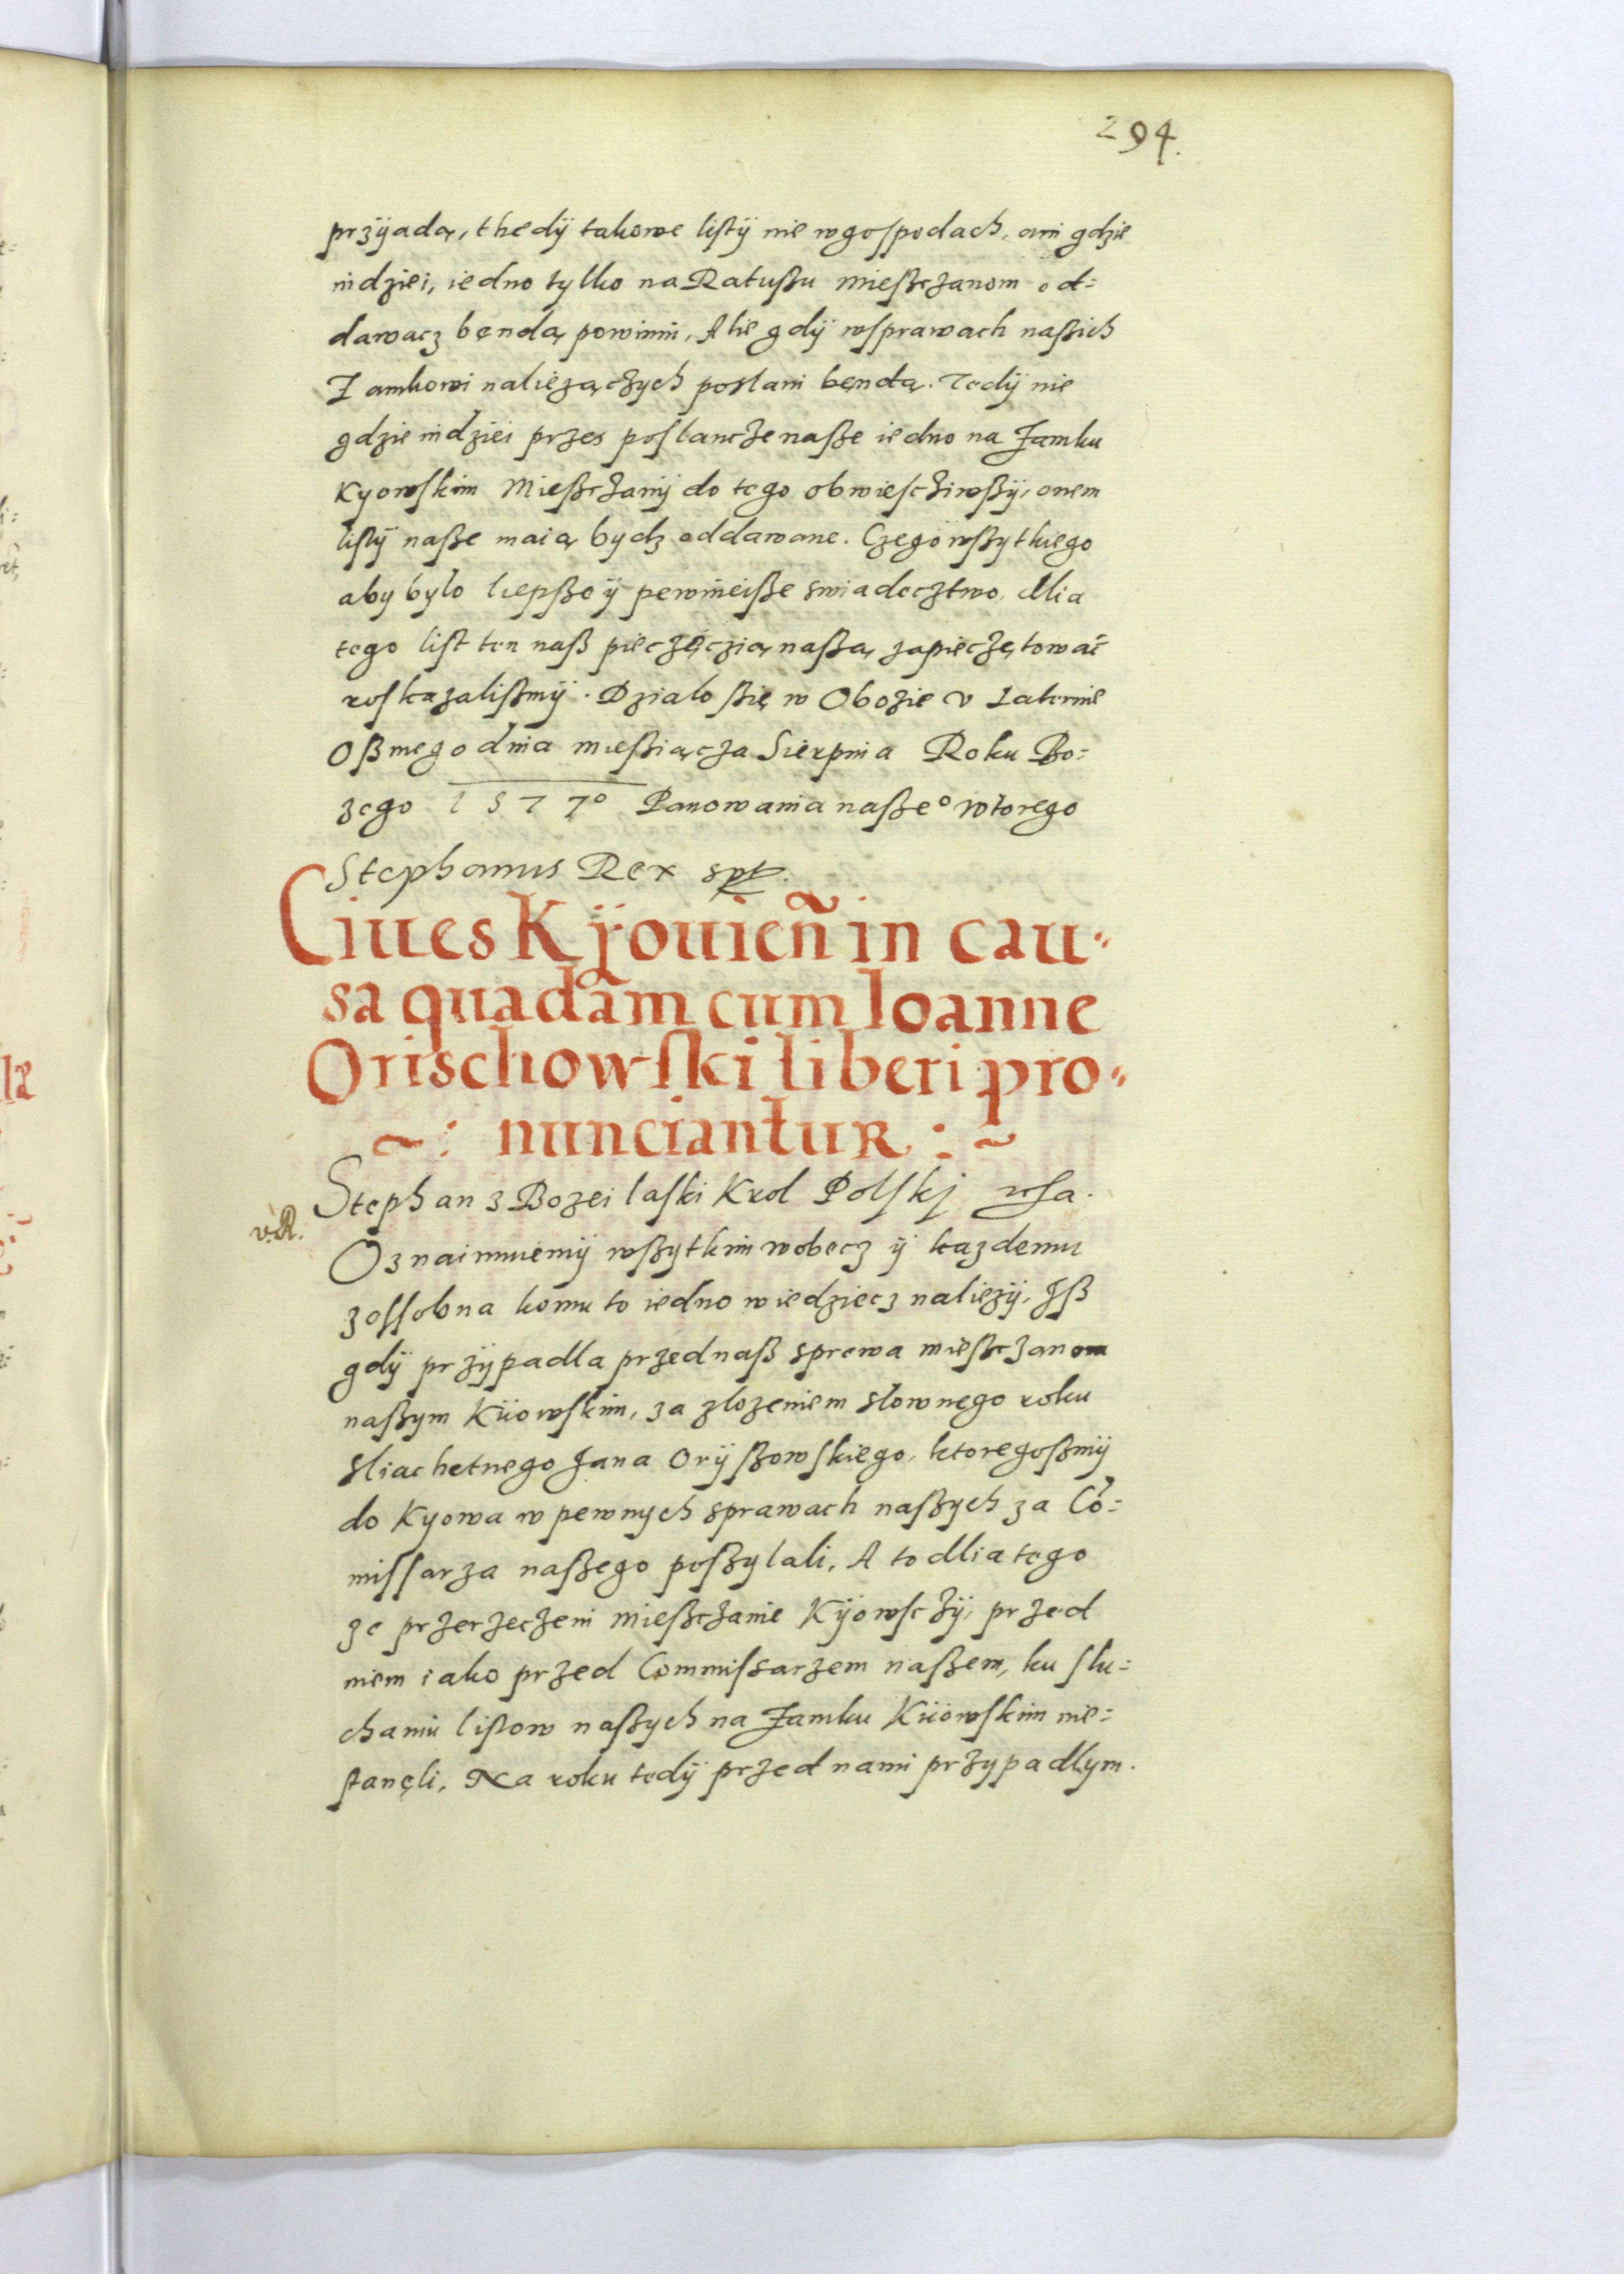 294.
przÿadą, thedÿ takowe listÿ nie w gospodach, ani gdzie
indziei, iedno tylko na Ratuszu mieszczanom od=
dawacz bendą powinni, A lie gdÿ w sprawach naszich
Zamkowi naliezączych poslani bendą. Tedÿ nie
gdzie indziei przes poslancze nasze iedno na Zamku
Kyowskim Mieszczanÿ do tego obwiescziwszÿ, onem
listÿ nasze maią bydz oddawane. Czego wszytkiego
aby bylo liepsze ÿ pewnieisze swiadecztwo, dlia
tego list ten nasz pieczęczią naszą zapieczętowac
roskazaliszmÿ. Dzialo szię w Obozie v Laternie
Oszmego dnia miesziącza Sierpnia Roku Bo=
zego 1577º Panowania naszeº wtorego
Stephanus Rex spt.
Ciues Kÿouien̄ in cau=
sa quadam cum Ioanne
Orischowski liberi pro=
~: nunciantur :~
Stephan z Bozei laski Krol Polskj
v.R.
Oznaimuiemÿ wszytkim wobecz ÿ kazdemu
zossobna komu to iedno wiedziecz naliezÿ, Isz
gdÿ przÿpadla przed nasz sprawa mieszczanom
naszym Kiiowskim, za zlozeniem slownego roku
sliachetnego Jana Orÿszowskiego, ktoregoszmÿ
do Kyowa w pewnych sprawach naszych za Cō=
missarza naszego poszylali, A to dlia tego
ze przerzeczeni mieszczanie Kÿowsczÿ, przed
niem iako przed Commissarzem naszem, ku slu=
chaniu listow naszych na Zamku Kiiowskim nie=
stanęli, Na roku tedÿ przed nami przypadlym.